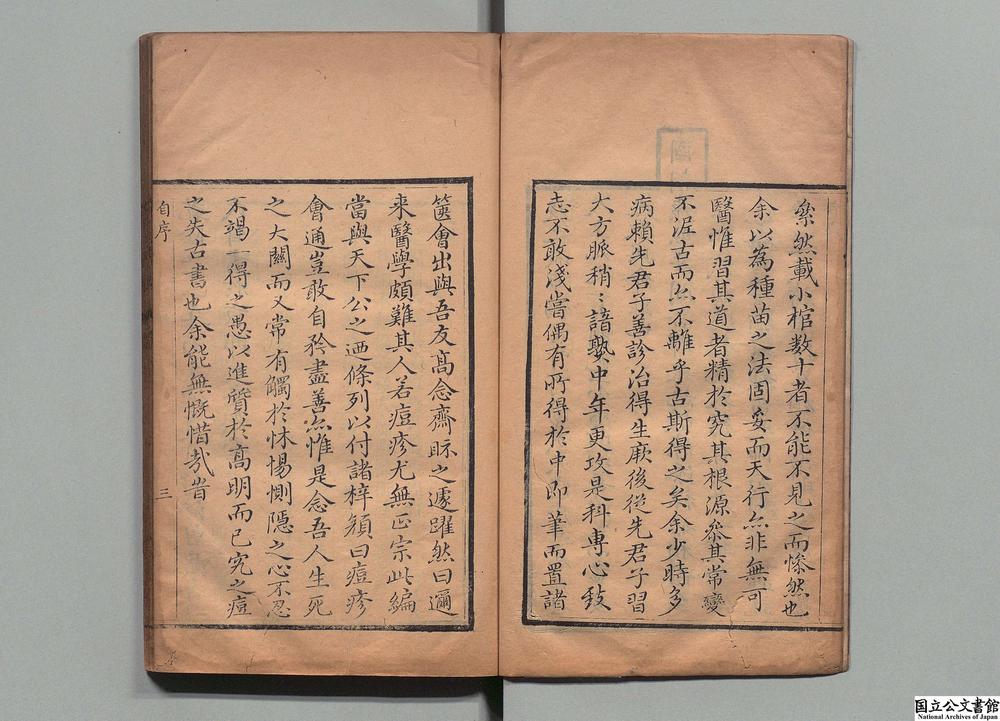 纍然載小棺数十者不能不見之而慘然也
余以為種苗之法固妥而天行亦非無可
醫惟習其道者精於究其根源叅其常變
不泥古而亦不離乎古斯得之矣余少時多
病賴先君子善診治得生厥後從先君子習
大方脈稍〻諳㙯中年更攻是科專心致
志不敢淺嘗偶有所得於中即筆而置諸
篋會出與吾友高念齋眎之遽躍然曰邇
来醫學頗難其人若痘疹尤無正宗此編
當與天下公之迺條列以付諸梓顏曰痘疹
會通豈敢自矜盡善亦惟是念吾人生死
之大關而又常有觸於怵惕惻隱之心不忍
不竭一得之愚以進質於高明而已究之痘
之失古書也余能無慨惜哉昔
自序
三
国立公文書館
National Archives of Japan